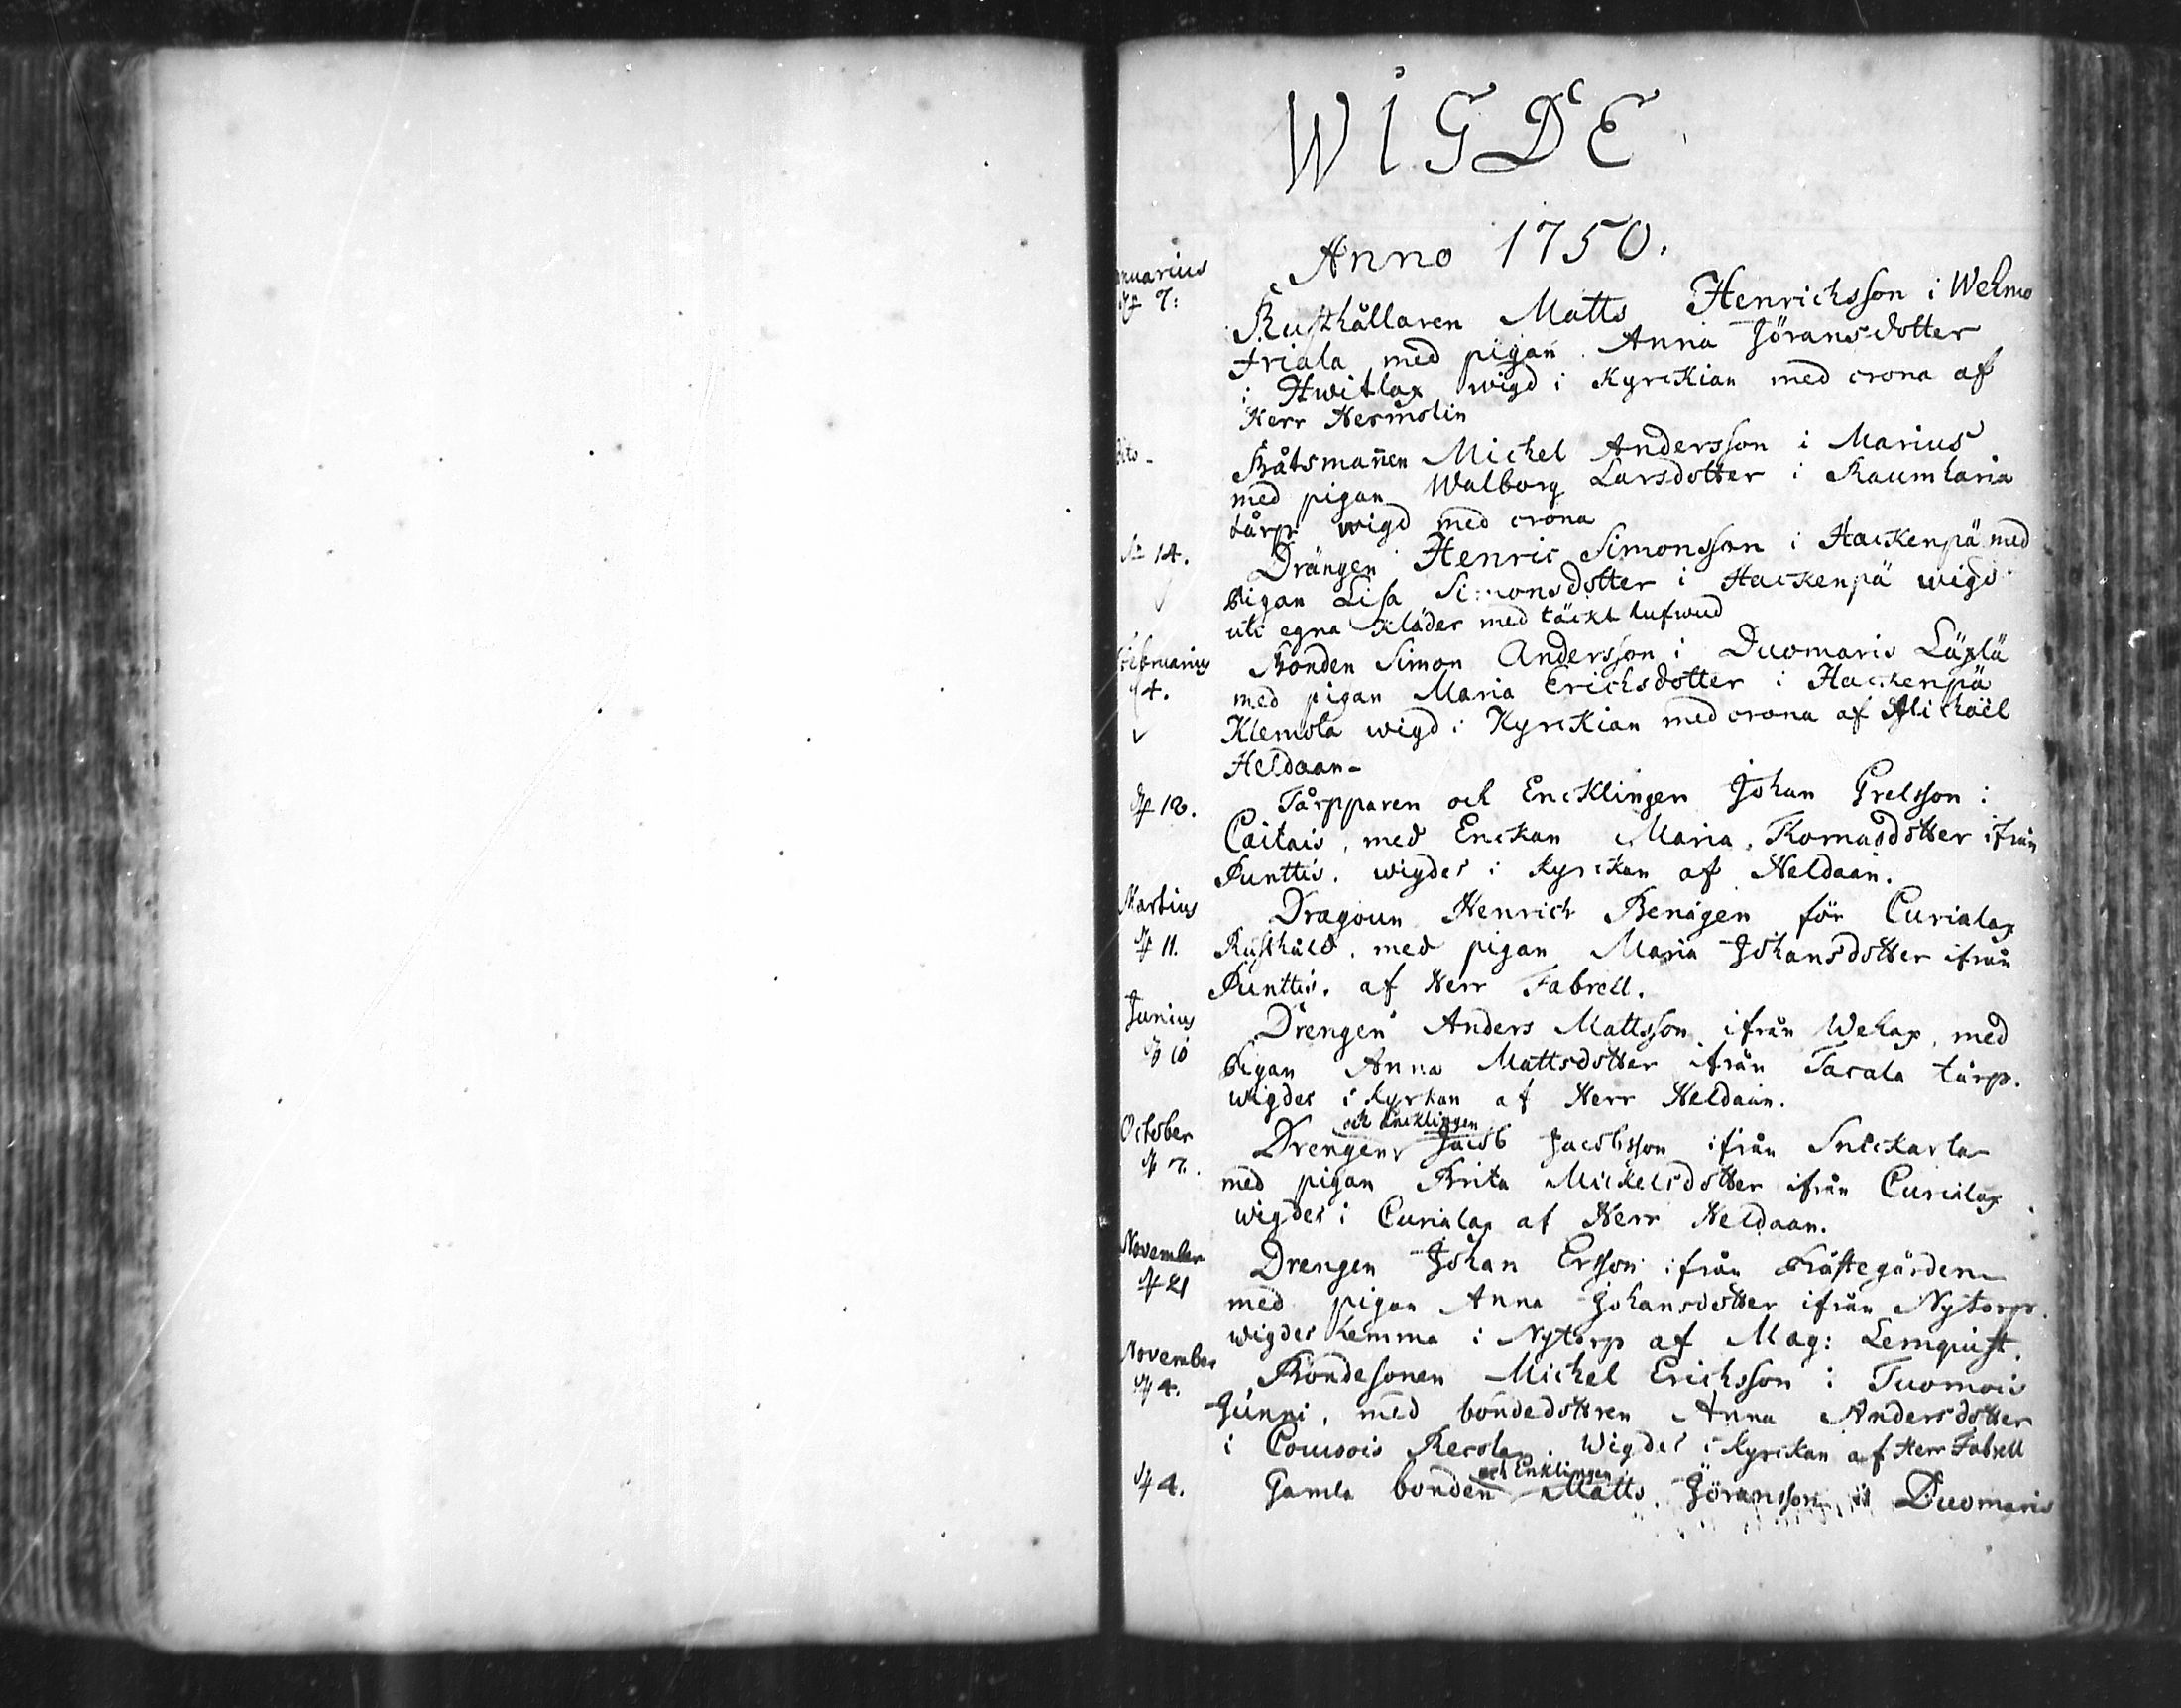 WIGDE
Anno 1750.
Januarius
d 7:
Rusthållaren Matts Henrichsson i Wehmo
Friala med pigan Anna Jöransdotter
i Hwitlax wigd i Kyrckian med crona af
Herr Hermolin
dito -
Båtsmannen Michel Andersson i Marius
med pigan Walborg Larsdotter i Raumharia
tårp wigd med crona
14.
Drängen Henric Simonsson i Hackenpä med
Pigan Lisa Simonsdotter i Hackenpä wigd
uti egna Kläder med täckt hufwud
Februarius
4.
Bonden Simon Andersson i Duomaris Läxlä
med pigan Maria Erichsdotter i Hackenpä
Klemola wigd i Kyrckian med crona af Michäel
Heldaan-
d 12.
Tårpparen och Encklingen Johan Grelsson i
Caitais, med Enckan Maria Thomasdotter ifrån
Punttis. wigdes i Kyrckan af Heldaan.
Martius
d 11.
Dragoun Henrich Benägen för Curialax
Rusthåld, med pigan Maria Johansdotter ifrån
Punttis. af Herr Fabrell.
Junius
d 10
Drengen Anders Mattsson ifrån Wehax, med
Pigan Anna Mattsdotter ifrån Tacala tårp.
wigdes i Kyrkan af Herr Heldaan.
October
d 7.
och äncklingen
Drengen Jacob Jacobsson ifrån Snickarla
med pigan Brita Mickelsdotter ifrån Curialax
wigdes i Curialax af Herr Heldaan.
November
d 21
Drengen Johan Ersson ifrån Prästegården
med pigan Anna Johansdotter ifrån Nytorp.
wigdes hemma i Nytorp af Mag: Lemquist.
November
d 4.
Bondesonen Michel Erichsson i Tuomois
Junni, med bondedottren Anna Andersdotter
i Couwois Recola. Wigdes i Kyrckan af Herr Fabrell
d 4.
och Enklingen
Gamla bonden Matts Jöransson i Duomaris